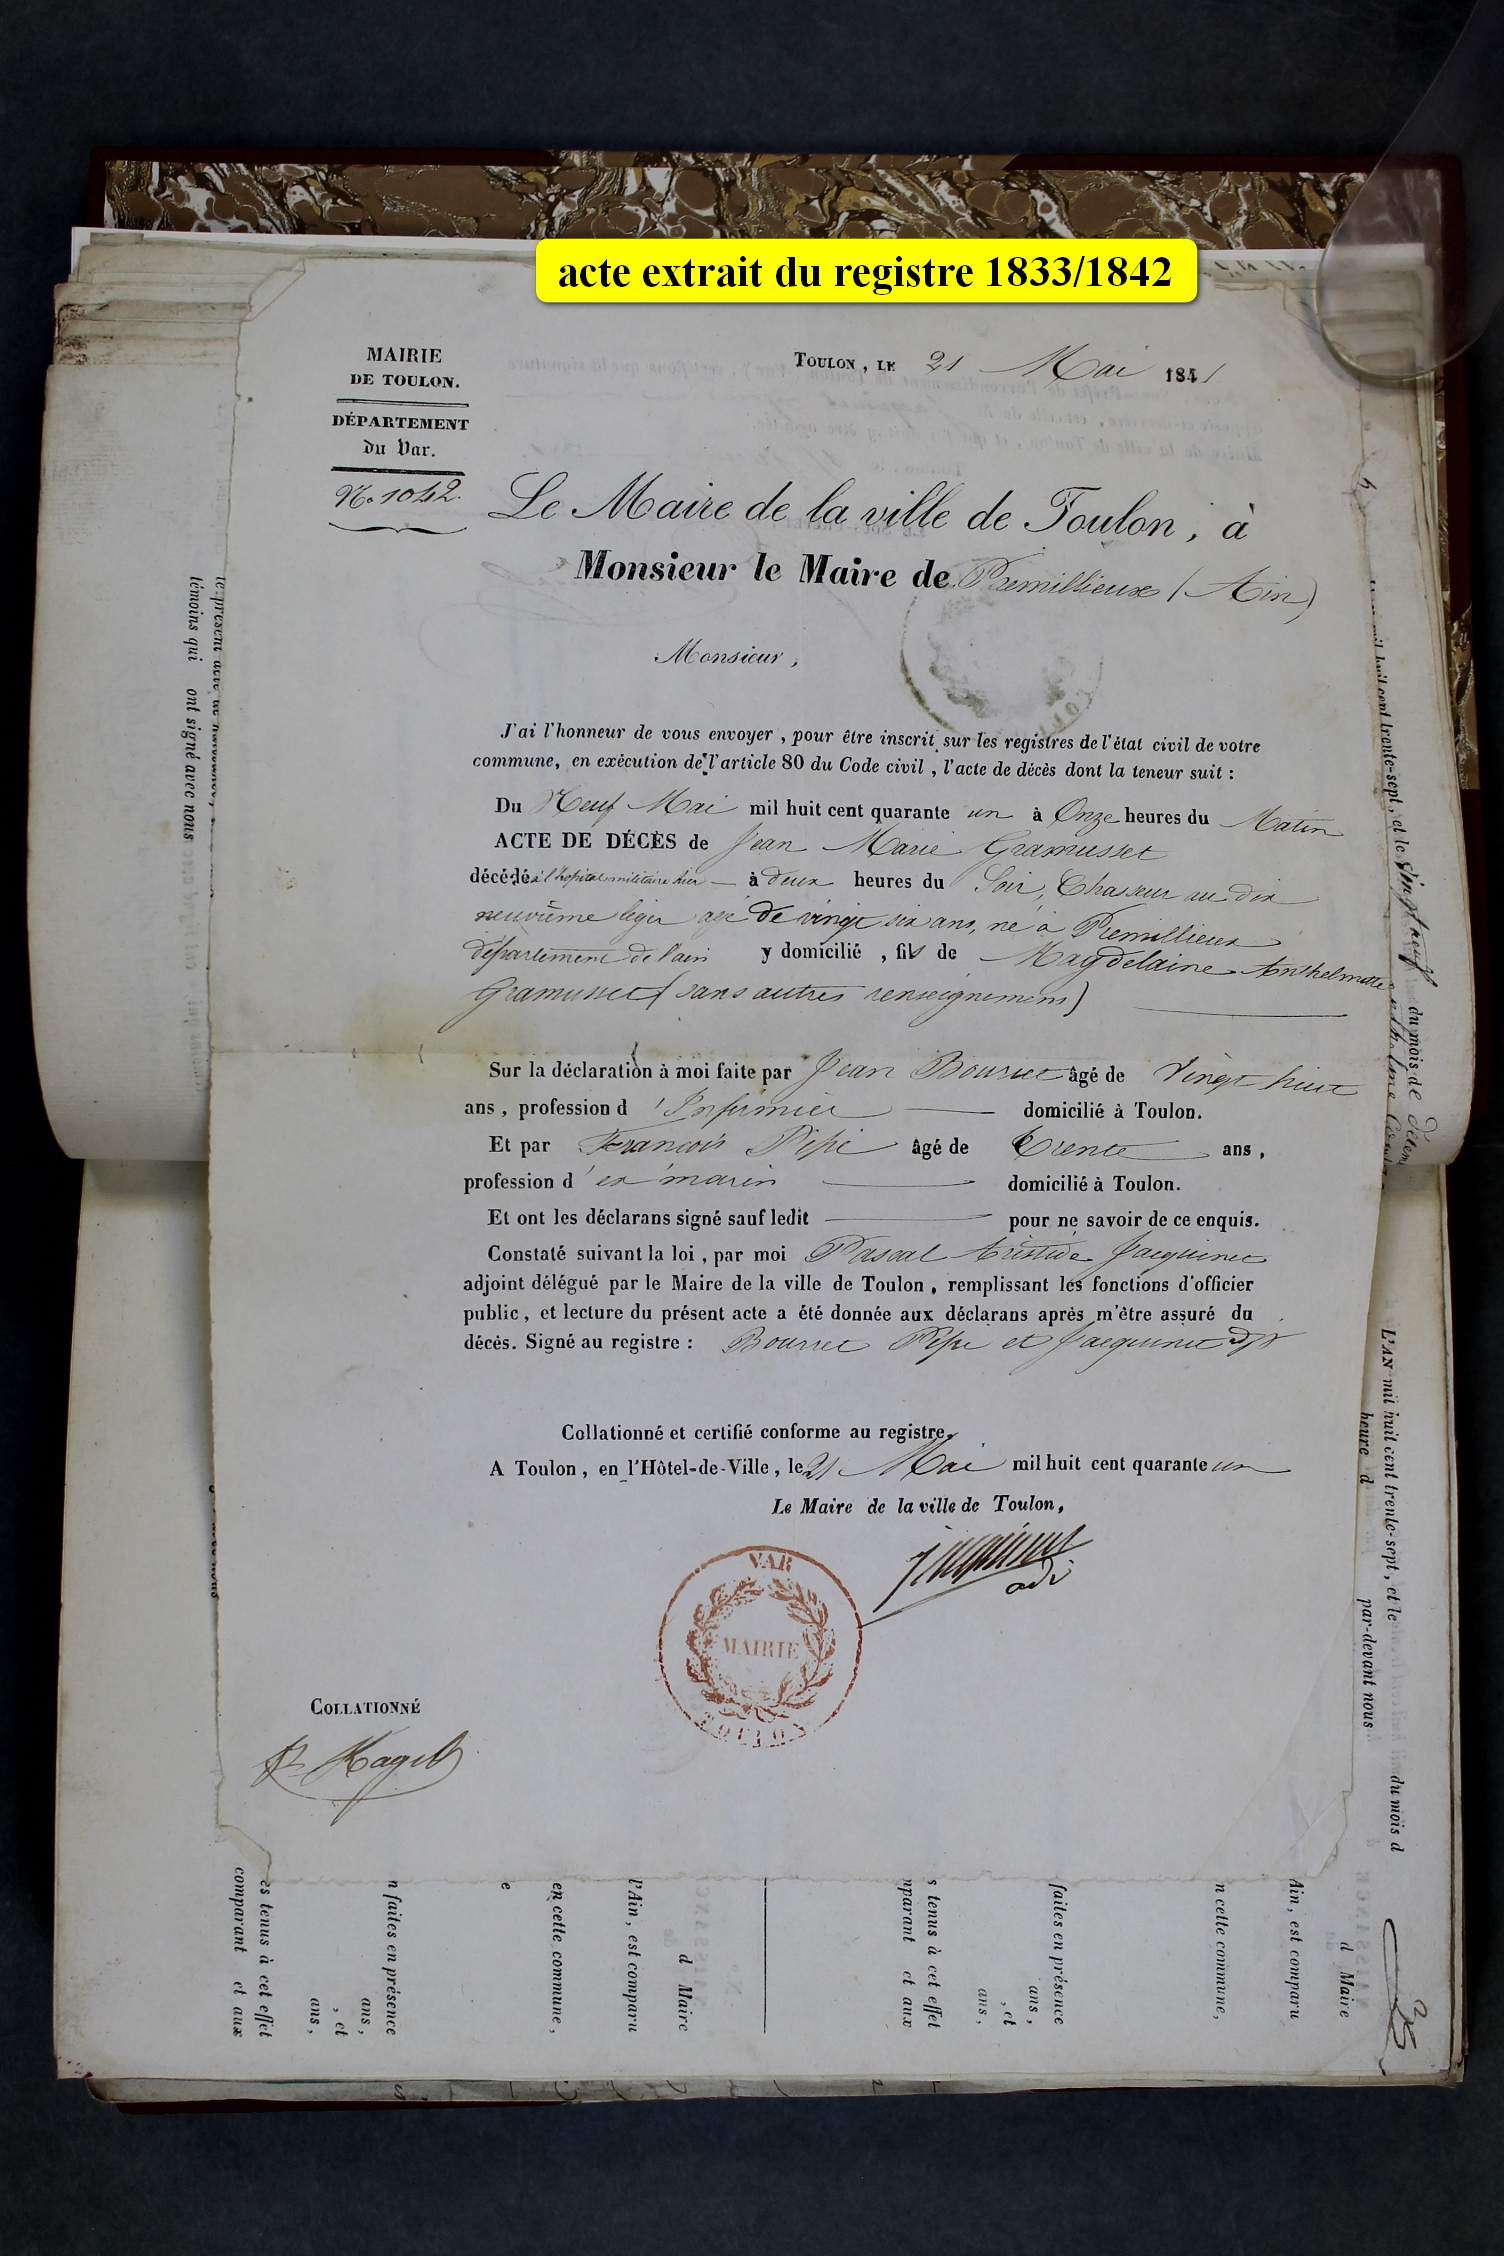 acte extrait du registre 1833/1842
MAIRIE
DE TOULON.
DÉPARTEMENT
du Var.
No. 1042.
TOULON, LE 21 Mai 1841
Le Maire de la ville de Toulon, à
Monsieur le Maire de Premillieux (Ain)
Monsieur,
J'ai l'honneur de vous envoyer, pour être inscrit sur les registres de l'état civil de votre
commune, en exécution de l'article 80 du Code civil, l'acte de décès dont la teneur suit :
Du Neuf Mai mil huit cent quarante un à Onze heures du Matin
ACTE DE DÉCÈS de Jean Marie Gramusset
décédé à l'hopital militaire hier — à deux heures du Soir, Chasseur au dix
neuvième léger agé de vingt six ans, né à Premillieux
département de l'ain y domicilié, fils de Magdelaine Anthelmette
Gramusset (sans autres renseignemens)
Sur la déclaration à moi faite par Jean Bourret âgé de Vingt huit
ans, profession d'Infirmier domicilié à Toulon.
Et par François Pépi âgé de trente ans,
profession d'ex marin domicilié à Toulon.
Et ont les déclarans signé sauf ledit pour ne savoir de ce enquis.
Constaté suivant la loi, par moi Pascal Aristide Jacquinet
adjoint délégué par le Maire de la ville de Toulon, remplissant les fonctions d'officier
public, et lecture du présent acte a été donnée aux déclarans après m'être assuré du
décès. Signé au registre : Bourret Pépi et Jacquinet adjt
Collationné et certifié conforme au registre.
A Toulon, en l'Hôtel-de-Ville, le 21 Mai mil huit cent quarante un
Le Maire de la ville de Toulon,
Jacquinet
adj
VAR
MAIRIE
TOULON
COLLATIONNÉ
le présent acte de naissance,
témoins qui ont signé avec nous
vingt neuf du mois de
L'AN mil huit cent trente-sept, et le du mois d
heure d par-devant nous
d Maire
Ain, est comparu
n cette commune,
faites en présence
ans,
, et
ans,
s tenus à cet effet
mparant et aux
d Maire
l'Ain, est comparu
en cette commune,
e
n faites en présence
ans,
, et
ans,
es tenus à cet effet
comparant et aux